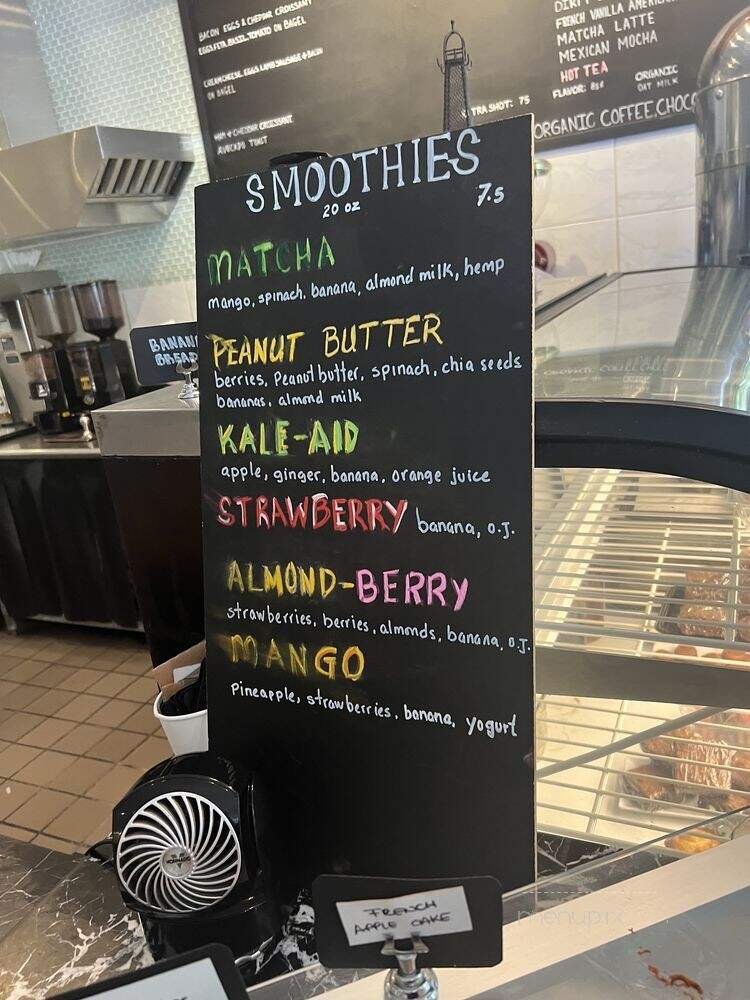 BACON EGGS & CHEDDAR CROISSANT
EGGS, FETA, BASIL, TOMATO ON BAGEL
CREAMCHEESE, EGGS, LAMB SAUSAGE & BACON
ON BAGEL
HAM & CHEDDAR CROISSANT
AVOCADO TOAST
FRENCH VANILLA AMERICANO
MATCHA LATTE
MEXICAN MOCHA
HOT TEA
FLAVOR: 85¢
ORGANIC
OAT MILK
TRA SHOT: 75
ORGANIC COFFEE, CHOCO
SMOOTHIES
20 oz
7.5
MATCHA
mango, spinach, banana, almond milk, hemp
PEANUT BUTTER
berries, Peanut butter, spinach, chia seeds
bananas, almond milk
KALE-AID
apple, ginger, banana, orange juice
STRAWBERRY banana, o.J.
ALMOND-BERRY
strawberries, berries, almonds, banana, o.J.
MANGO
Pineapple, strawberries, banana, yogurt
BANAN
BREAD
VORNADO
FRENCH
APPLE CAKE
menupix